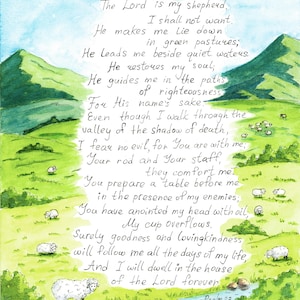 The Lord is my shepherd,
I shall not want.
He makes me lie down
in green pastures;
He leads me beside quiet waters.
He restores my soul;
He guides me in the paths
of righteousness
For His name's sake.
Even though I walk through the
valley of the shadow of death,
I fear no evil, for You are with me;
Your rod and Your staff,
they comfort me.
You prepare a table before me
in the presence of my enemies;
You have anointed my head with oil;
My cup overflows.
Surely goodness and lovingkindness
will follow me all the days of my life,
And I will dwell in the house
of the Lord forever.